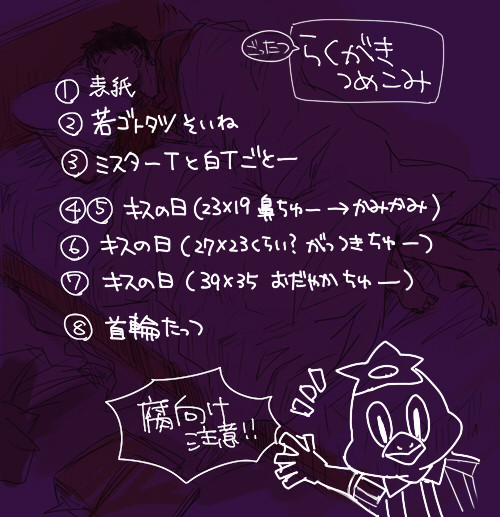 ごったつ
らくがき
つめこみ
① 表紙
② 若ゴトタツ そいね
③ ミスターTと白Tごとー
④⑤ キスの日(23×19 鼻ちゅー→かみかみ)
⑥ キスの日(27×23くらい? がっつきちゅー)
⑦ キスの日(39×35 おだやかちゅー)
⑧ 首輪たっつ
腐向け
注意!!